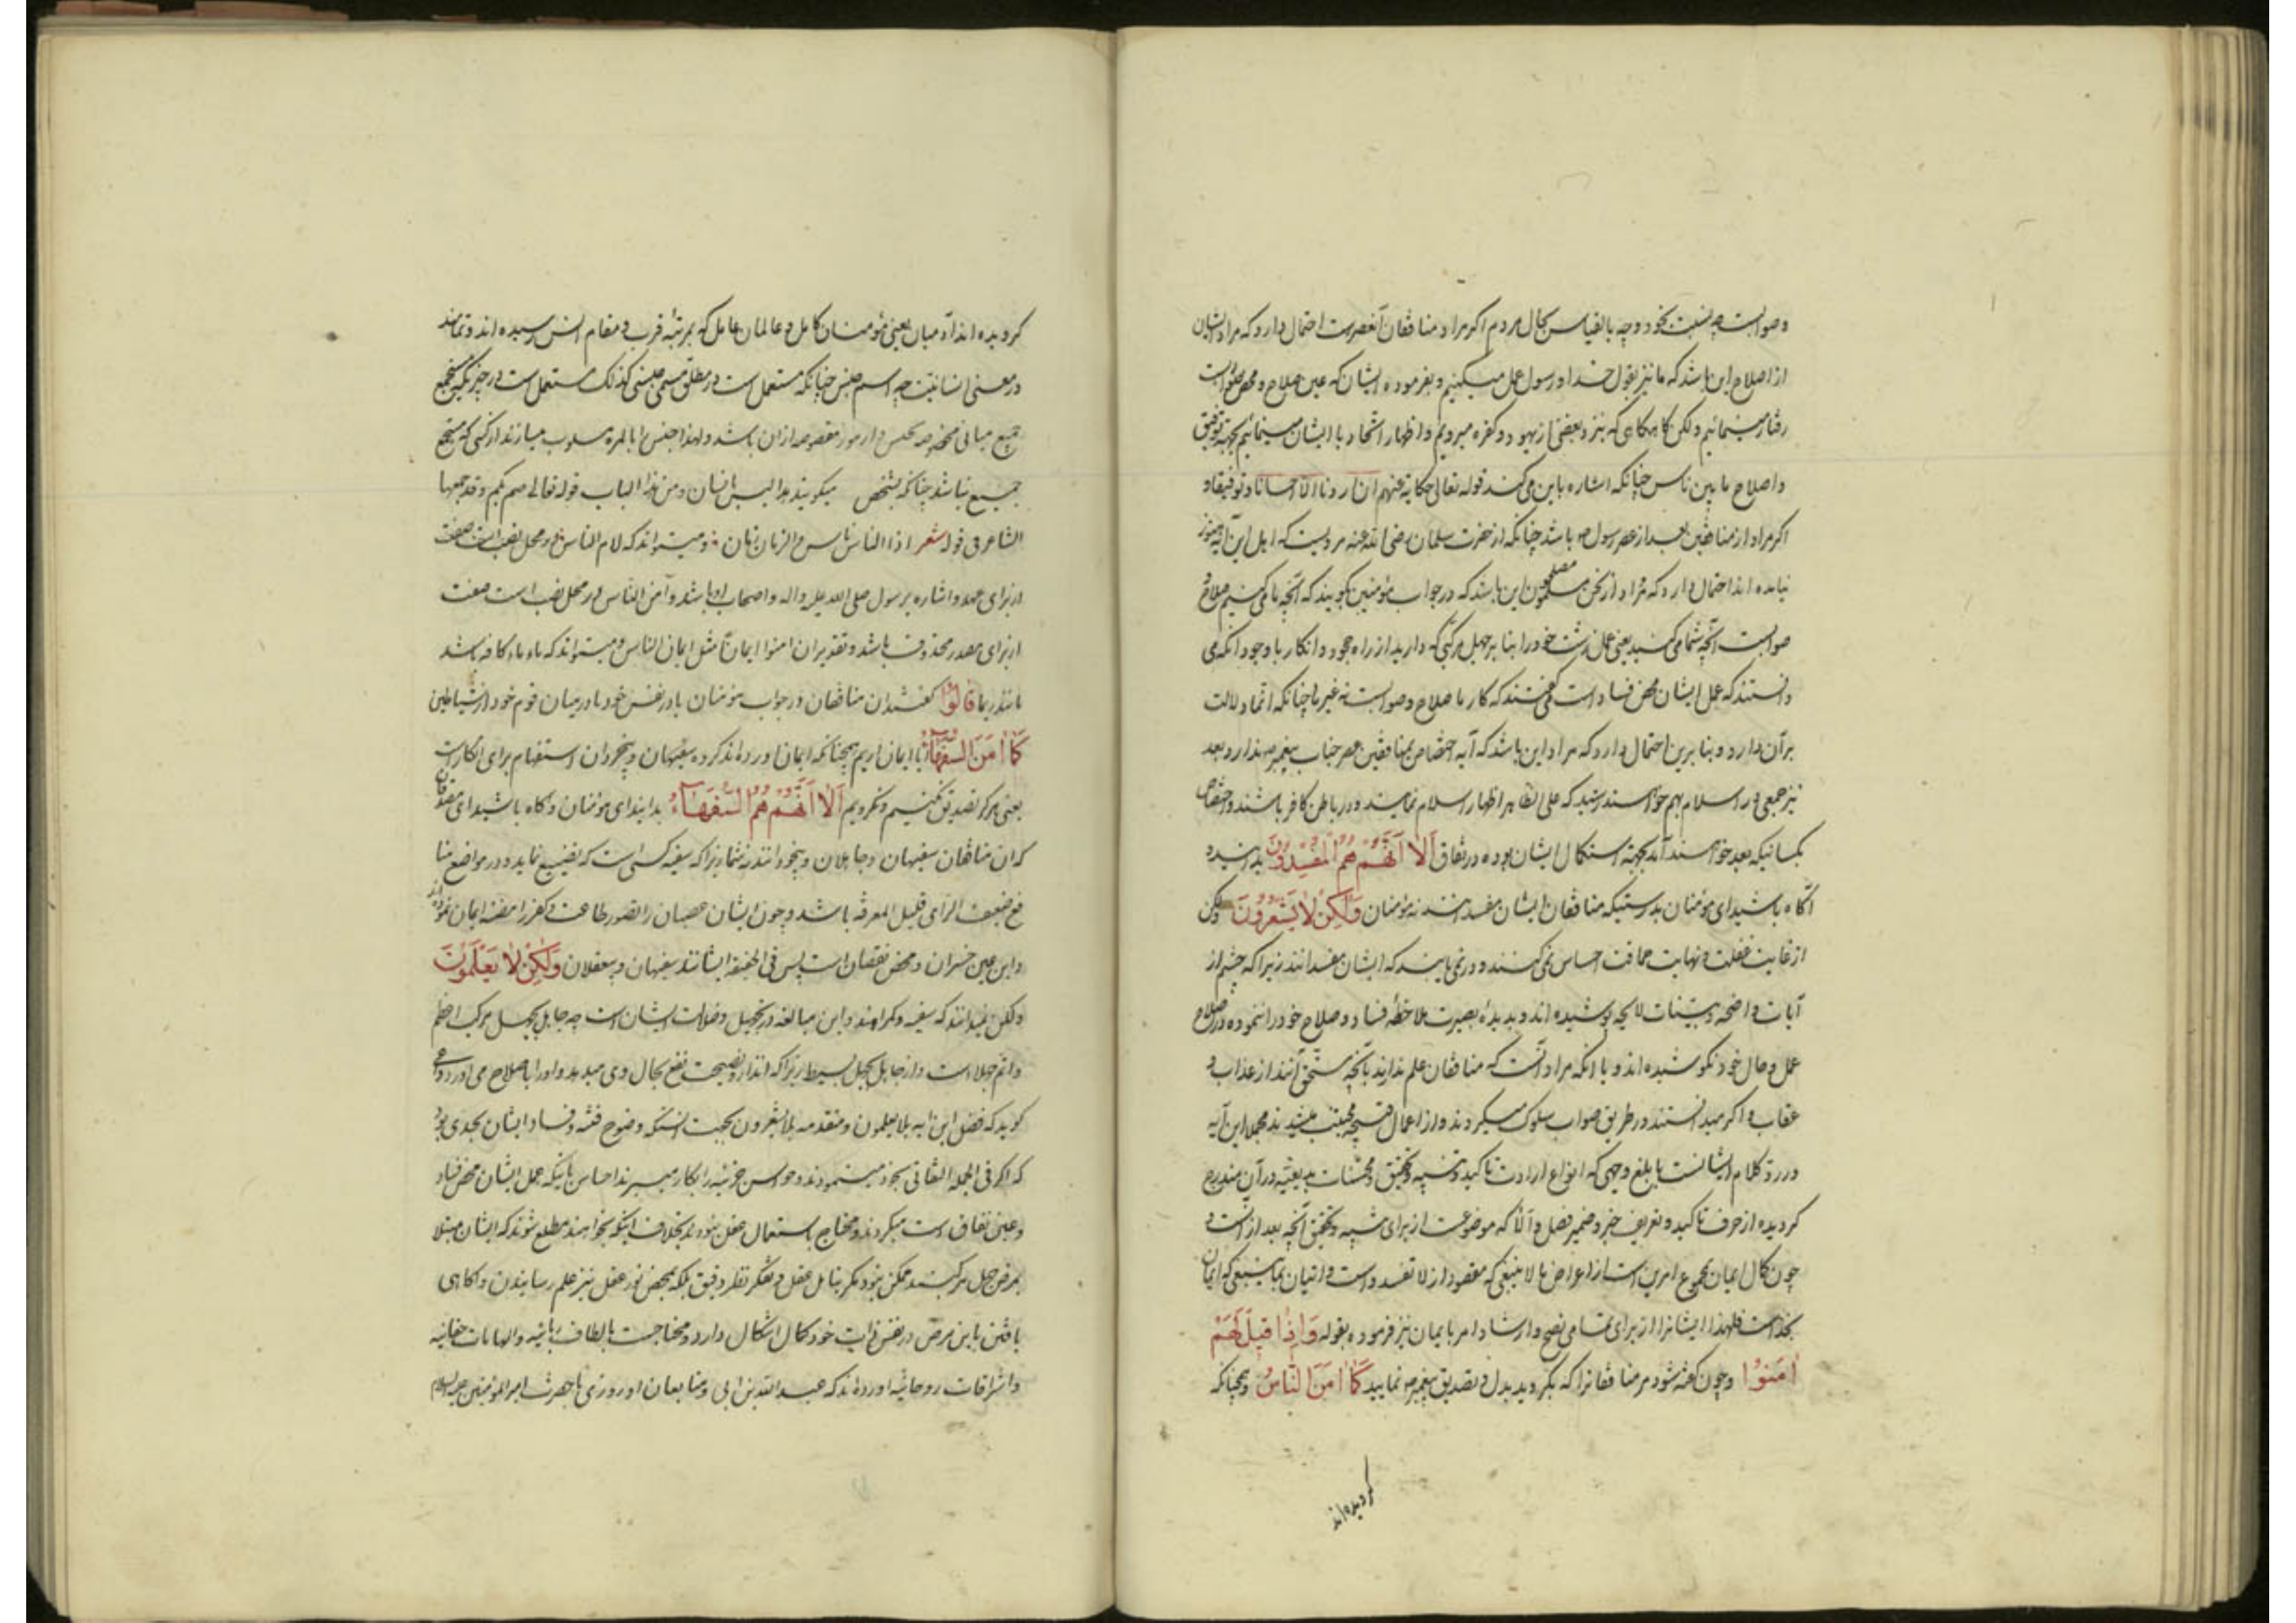 وصوابست چه نسبت بخود و چه بالقیاس بحال مردم اکر مراد منافقان آنعصرست احتمال دارد که مراد ایشان
از اصلاح این باشد که ما نیز بقول خدا و رسول عمل میکنیم و بفرموده ایشان که عین صلاح و محض صوابست
رفتار مینمائیم ولکن کاهکاهی که بنزد بعضی از یهود و کفره میرویم و اظهار اتحاد با ایشان مینمائیم بجهة توفیق
و اصلاح ما بین ناس چنانکه اشاره باین می کند قوله تعالی حکایة عنهم ان اردنا الا احسانا و توفیقا و
اکر مراد از منافقین بعد از عصر رسول ص باشد چنانکه از حضرت سلمان رضی الله عنه مرویست که اهل این آیه هنوز
نیامده اند احتمال دارد که مراد از نحن مصلحون این باشد که در جواب مؤمنین کویند که آنچه ما می کنیم صلاح و
صوابست آنچه شما می کنید یعنی عمل زشت خود را بنا بر جهل مرکبی که دارید از راه جحود و انکار با وجود آنکه می
دانستند که عمل ایشان محض فساد است کفتند که کار ما صلاح و صوابست نه غیر ما چنانکه انما دلالت
بر آن دارد و بنا برین احتمال دارد که مراد این باشد که آیه اختصاص بمنافقین عصر جناب پیغمبر ص ندارد و بعد
نیز جمعی در اسلام بهم خواهند رسید که علی الظاهر اظهار اسلام نمایند و در باطن کافر باشند و اختصاص
بکسانیکه بعد خواهند آمد بجهة استکمال ایشان بوده در نفاق اَلا اِنَّهُمْ هُمُ الْمُفْسِدُونَ بدانید و
آگاه باشید ای مؤمنان بدرستیکه منافقان ایشان مفسدانند نه مؤمنان وَلکِنْ لا یَشْعُرُونَ ولکن
از غایت غفلت و نهایت حماقت احساس نمی کنند و در نمی یابند که ایشان مفسدانند زیرا که چشم از
آیات واضحه و بینات لایحه پوشیده اند و بدیدهٔ بصیرت ملاحظهٔ فساد و صلاح خود را ننموده در اصلاح
عمل و حال خود نکوشیده اند و یا آنکه مراد آنست که منافقان علم ندارند بآنچه مستحق آنند از عذاب و
عقاب و اکر میدانستند در طریق صواب سلوک میکردند و از اعمال قبیحه مجتنب میشدند مجملا این آیه
در رد کلام ایشانست بابلغ وجهی که انواع ارادت تاکید و تنبیه و تحقیق و محسنات بدیعیه در آن مندرج
کردیده از حرف تاکید و تعریف خبر و ضمیر فصل و الا که موضوعست از برای تنبیه و تحقیق آنچه بعد از آنست و
چون کمال ایمان مجموع امرین است از اعراض ما لا ینبغی که مقصود از لا تفسدواست و اتیان بما ینبغی که ایمان
بخداست فلهذا ایشانرا از برای تمامی نصح و ارشاد امر بایمان نیز فرموده بقوله وَاِذا قیلَ لَهُمْ
امِنُوا و چون کفته شود مر منافقانرا که بکروید بدل و تصدیق پیغمبر ص نمایید کَما امَنَ النّاسُ همچنانکه
کرویده اند
کرویده اند آدمیان یعنی مؤمنان کامل و عالمان عامل که بمرتبهٔ قرب و مقام انس رسیده اند و تمامند
در معنی انسانیت چه اسم جنس چنانکه مستعمل است در مطلق مسمی جنسی کذلک مستعمل است در چیزیکه مستجمع
جمیع معانی مخصوصه بجنس و امور مقصوصه از ان باشد و لهذا جنس را بالمره مسلوب میسازند از کسی که مستجمع
جمیع نباشد چنانکه بشخص میکویند هذا لیس بانسان و من هذا الباب قوله تعالی صم بکم و قد جمعها
الشاعر فی قوله شعر اذا الناس ناس و الزمان زمان و میتواند که لام الناس در محل نصب است صفت
از برای عهد و اشاره برسول صلی الله علیه واله و اصحاب او باشد و آمن الناس در محل نصب است صفت
از برای مصدر محذوف باشد و تقدیر ان امنوا ایمانا مثل ایمان الناس و میتواند که ماء ماء کافه باشد
مانند ربما قالُوا کفتند ان منافقان در جواب مؤمنان یا در نفس خود یا در میان قوم خود از شیاطین
کَما امَنَ السُّفَهاءُ آیا ایمان اریم همچنانکه ایمان اورده اند کروه سفیهان و بیخردان استفهام برای انکار است
یعنی هرکز تصدیق نکنیم و نکرویم اَلا اِنَّهُمْ هُمُ السُّفَهاءُ بدانید ای مؤمنان و آکاه باشید ای مصدقان
که ان منافقان سفیهان و جاهلان و بیخردانند نه شما زیرا که سفیه کسی است که تضییع نماید در مواضع منا
فع ضعیف الرای قلیل المعرفه باشد و چون ایشان عصیان را بتصور طاعت و کفر را مظنهٔ ایمان نموده اند
و این عین خسران و محض نقصان است پس فی الحقیقه ایشانند سفیهان و بیعقلان وَلکِنْ لا یَعْلَمُونَ
ولکن نمیدانند که سفیه و کمراهند و این مبالغه در تجهیل و ضلالت ایشان است چه جاهل بجهل مرکب اضل
و اتم جهلا است و از جاهل بجهل بسیط زیرا که انذار و نصیحت نفع بحال وی میدهد و او را باصلاح می اورد و می
کوید که فصل این آیه بلا یعلمون و متقدمه بلا یشعرون بجهت انستکه وضوح فتنه و فساد ایشان بحدی بود
که اکر فی الجمله التفاتی بخود مینمودند و حواس جزئیه را بکار میبردند احساس باینکه عمل ایشان محض فساد
و عین نفاق است میکردند و محتاج باستعمال عقل نبودند بخلاف اینکه بخواهند مطلع شوند که ایشان مبتلا
بمرض جهل مرکبند ممکن نبود مکر بتامل عقل و تفکر و نظر دقیق بلکه بمحض نور عقل نیز علم رسانیدن و اکاهی
یافتن باین مرض در نفس ذات خود کمال اشکال دارد و محتاجست بالطاف ربانیه و الهامات حقانیه
و اشراقات روحانیه اورده اند که عبدالله بن ابی و متابعان او روزی با حضرت امیرالمؤمنین علیه السلام